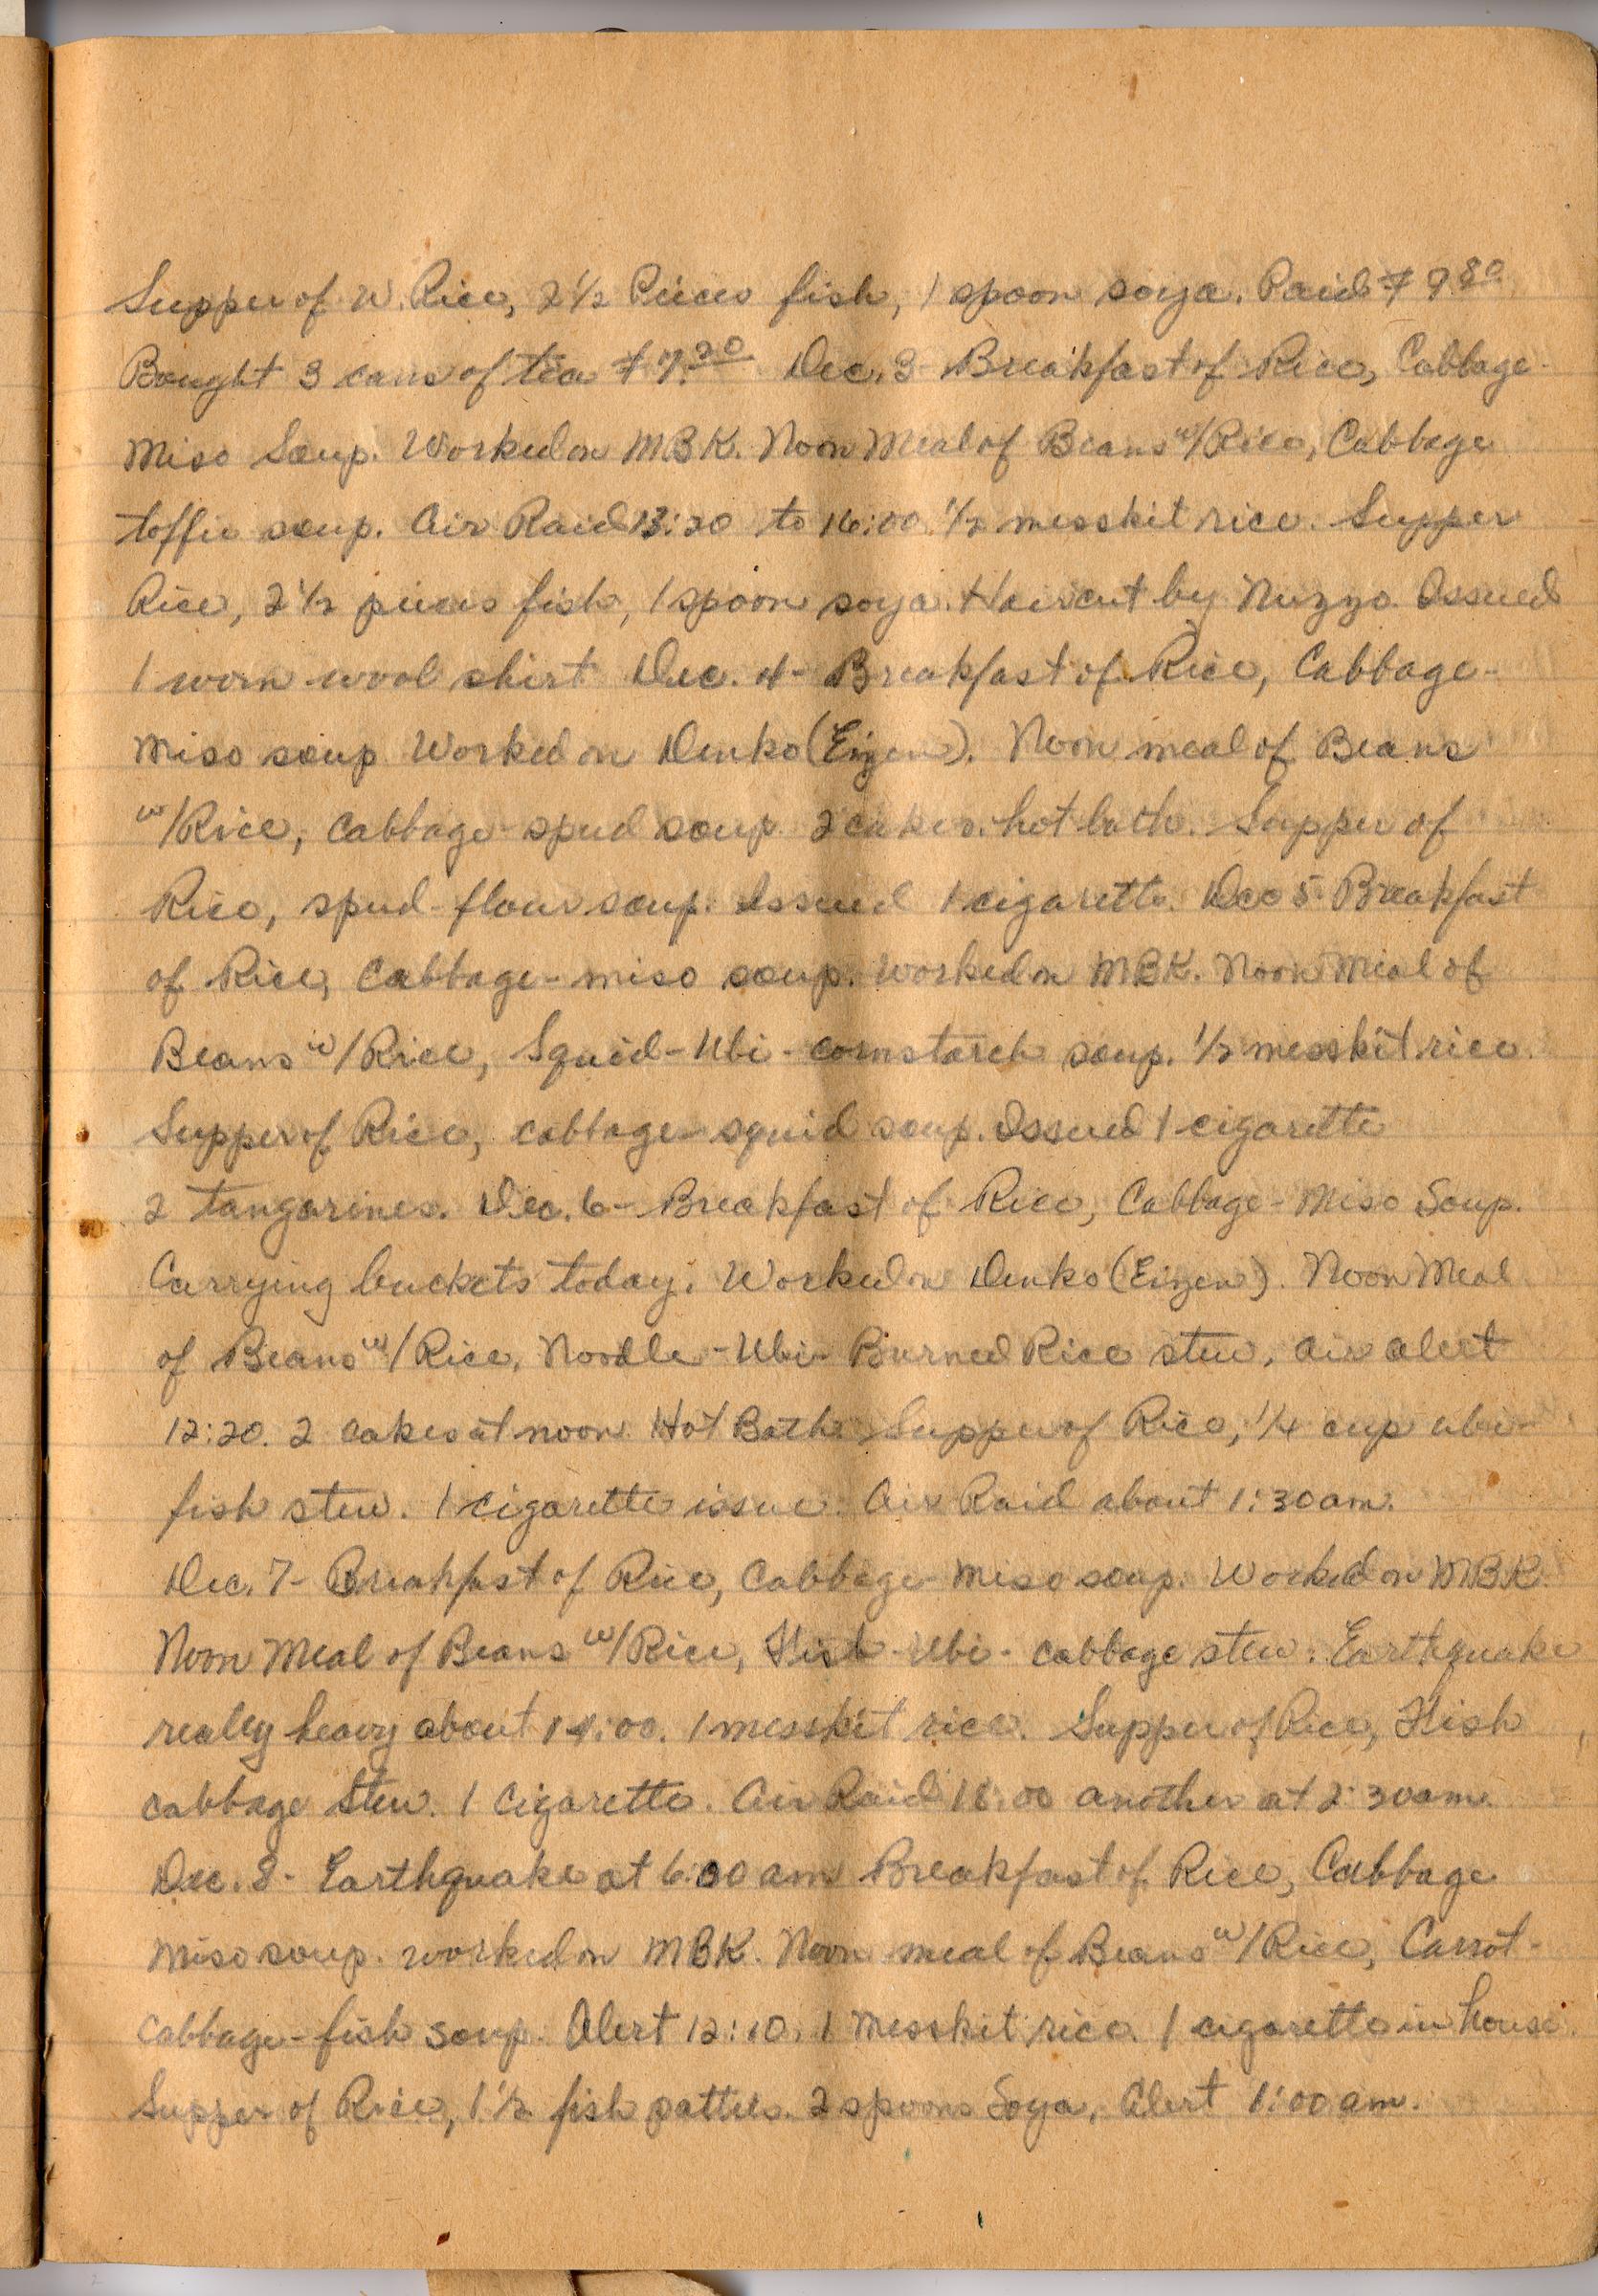 Supper of W. Rice, 2 1/2 Pieces fish, 1 spoon soya. Paid ¥ 9.80
Bought 3 cans of tea ¥ 7.20 Dec. 3- Breakfast of Rice, Cabbage-
Miso Soup. Worked on M.B.K. Noon Meal of Beans w/Rice, Cabbage
toffie soup. Air Raid 13:20 to 16:00. 1/2 messkit rice. Supper
Rice, 2 1/2 pieces fish, 1 spoon soya. Haircut by Nuzzo. Issued
1 worn wool shirt Dec. 4- Breakfast of Rice, Cabbage-
Miso soup Worked on Denko (Eizen). Noon meal of Beans
w/Rice, Cabbage-spud soup 2 cakes. hot bath. Supper of
Rice, spud-flour soup. Issued 1 cigarette. Dec 5- Breakfast
of Rice, Cabbage-miso soup. Worked on MBK. Noon Meal of
Beans w/Rice, Squid-Ubi-cornstarch soup. 1/2 messkit rice.
Supper of Rice, cabbage-squid soup. Issued 1 cigarette
2 tangarines. Dec. 6- Breakfast of Rice, Cabbage-Miso Soup.
Carrying buckets today. Worked on Denko (Eizen). Noon Meal
of Beans w/Rice, Noodle-Ubi-Burned Rice stew, air alert
12:20. 2 cakes at noon Hot Bath Supper of Rice, 1/4 cup ubi-
fish stew. 1 cigarette issue. Air Raid about 1:30 am.
Dec. 7- Breakfast of Rice, Cabbage-Miso soup. Worked on MBK.
Noon Meal of Beans w/Rice, Fish-Ubi-cabbage stew. Earthquake
really heavy about 14:00. 1 messkit rice. Supper of Rice, Fish
cabbage stew. 1 Cigarette. Air Raid 18:00 another at 2:30 am.
Dec. 8- Earthquake at 6:00 am Breakfast of Rice, Cabbage
Miso soup. worked on MBK. Noon meal of Beans w/Rice, Carrot-
cabbage-fish soup. Alert 12:10. 1 Messkit rice. 1 cigarette in house.
Supper of Rice, 1 1/2 fish patties. 2 spoons Soya, Alert 1:00 am.